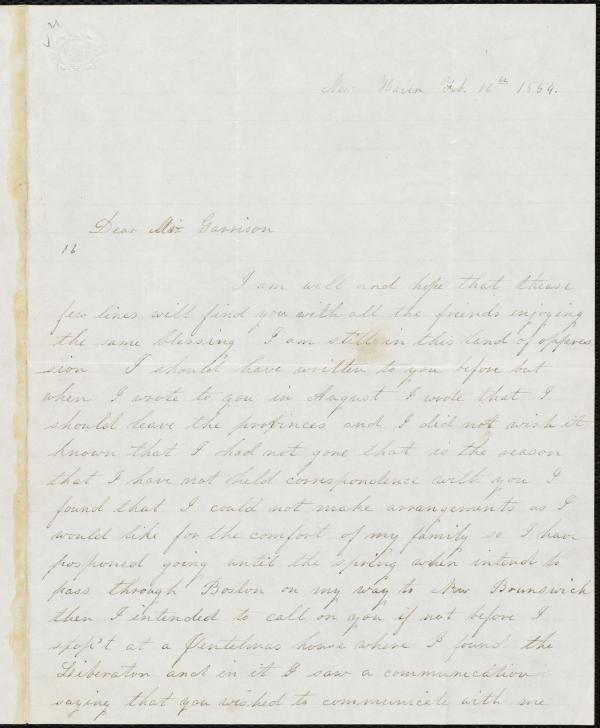 New Haven Feb. 16th 1854.
Dear Mr Garrison
16
I am well and hope that thease
few lines will find you with all the friends enjoying
the same blessing I am still in this land of oppres
sion I should have written to you before but
when I wrote to you in August I wrote that I
should leave the provinces and I did not wish it
known that I had not gone that is the reason
that I have not held correspondence with you I
found that I could not make arrangements as I
would like for the comfort of my family so I have
posponed going until the spring when intend to
pass through Boston on my way to New Brunswick
then I intended to call on you if not before I
stop't at a Gentelmas house where I found the
Leiberator and in it I saw a communication
saying that you wished to communicate with me